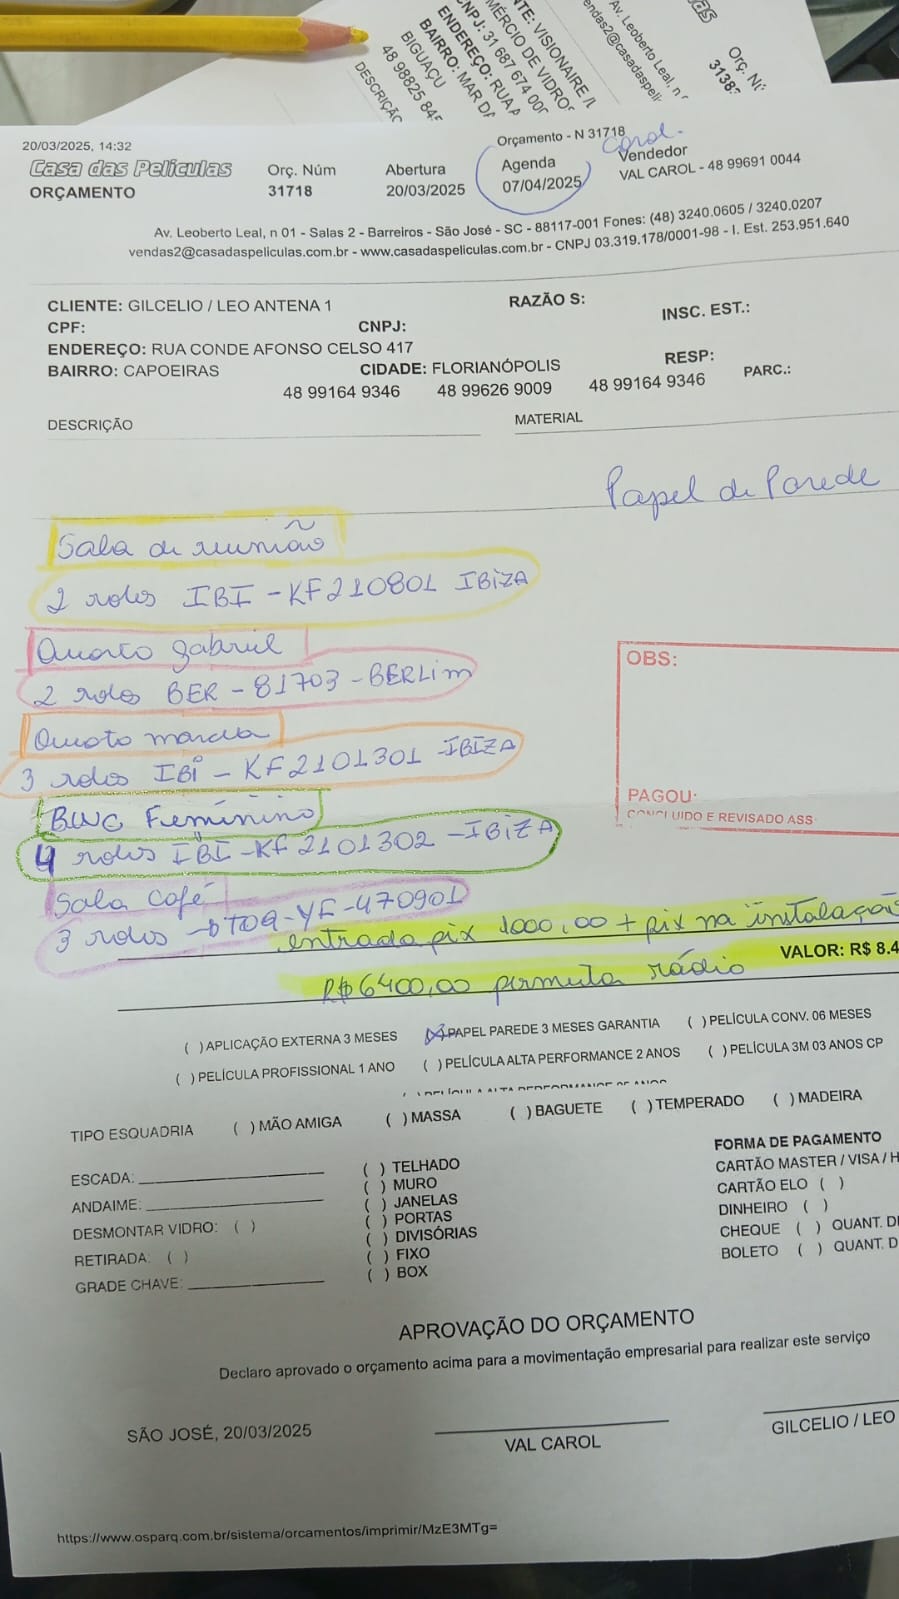 NTE: VISIONAIRE /L
MÉRCIO DE VIDROS
CNPJ: 31 687 674 00
ENDEREÇO: RUA A
BAIRRO: MAR DA
BIGUAÇU
48 98825 84
DESCRIÇÃO
Av. Leoberto Leal, n
endas2@casadaspeli
Orç. Nú
3138
20/03/2025, 14:32
Orçamento - N 31718
Carol.
Casa das Películas
ORÇAMENTO
Orç. Núm
31718
Abertura
20/03/2025
Agenda
07/04/2025
Vendedor
VAL CAROL - 48 99691 0044
Av. Leoberto Leal, n 01 - Salas 2 - Barreiros - São José - SC - 88117-001 Fones: (48) 3240.0605 / 3240.0207
vendas2@casadaspeliculas.com.br - www.casadaspeliculas.com.br - CNPJ 03.319.178/0001-98 - I. Est. 253.951.640
CLIENTE: GILCELIO / LEO ANTENA 1 RAZÃO S: INSC. EST.:
CPF: CNPJ:
ENDEREÇO: RUA CONDE AFONSO CELSO 417
BAIRRO: CAPOEIRAS CIDADE: FLORIANÓPOLIS RESP: PARC.:
48 99164 9346 48 99626 9009 48 99164 9346
DESCRIÇÃO MATERIAL
Papel de Parede
Sala de reunião
2 rolos IBI - KF210801 IBIZA
Quarto gabriel
2 rolos BER - 81703 - BERLim
Quarto marcia
3 rolos IBI - KF2101301 - IBIZA
BWC Feminino
4 rolos IBI - KF2101302 - IBIZA
Sala café
3 rolos YF-470901
OBS:
PAGOU:
CONCLUIDO E REVISADO ASS
entrada pix 1000,00 + pix na instalação
VALOR: R$ 8.4
R$6400,00 permuta rádio
( )APLICAÇÃO EXTERNA 3 MESES (X)PAPEL PAREDE 3 MESES GARANTIA ( )PELÍCULA CONV. 06 MESES
( )PELÍCULA PROFISSIONAL 1 ANO ( )PELÍCULA ALTA PERFORMANCE 2 ANOS ( )PELÍCULA 3M 03 ANOS CP
TIPO ESQUADRIA ( )MÃO AMIGA ( )MASSA ( )BAGUETE ( )TEMPERADO ( )MADEIRA
ESCADA:
ANDAIME:
DESMONTAR VIDRO: ( )
RETIRADA: ( )
GRADE CHAVE:
( ) TELHADO
( ) MURO
( ) JANELAS
( ) PORTAS
( ) DIVISÓRIAS
( ) FIXO
( ) BOX
FORMA DE PAGAMENTO
CARTÃO MASTER / VISA / H
CARTÃO ELO ( )
DINHEIRO ( )
CHEQUE ( ) QUANT. D
BOLETO ( ) QUANT. D
APROVAÇÃO DO ORÇAMENTO
Declaro aprovado o orçamento acima para a movimentação empresarial para realizar este serviço
SÃO JOSÉ, 20/03/2025
VAL CAROL
GILCELIO / LEO
https://www.osparq.com.br/sistema/orcamentos/imprimir/MzE3MTg=